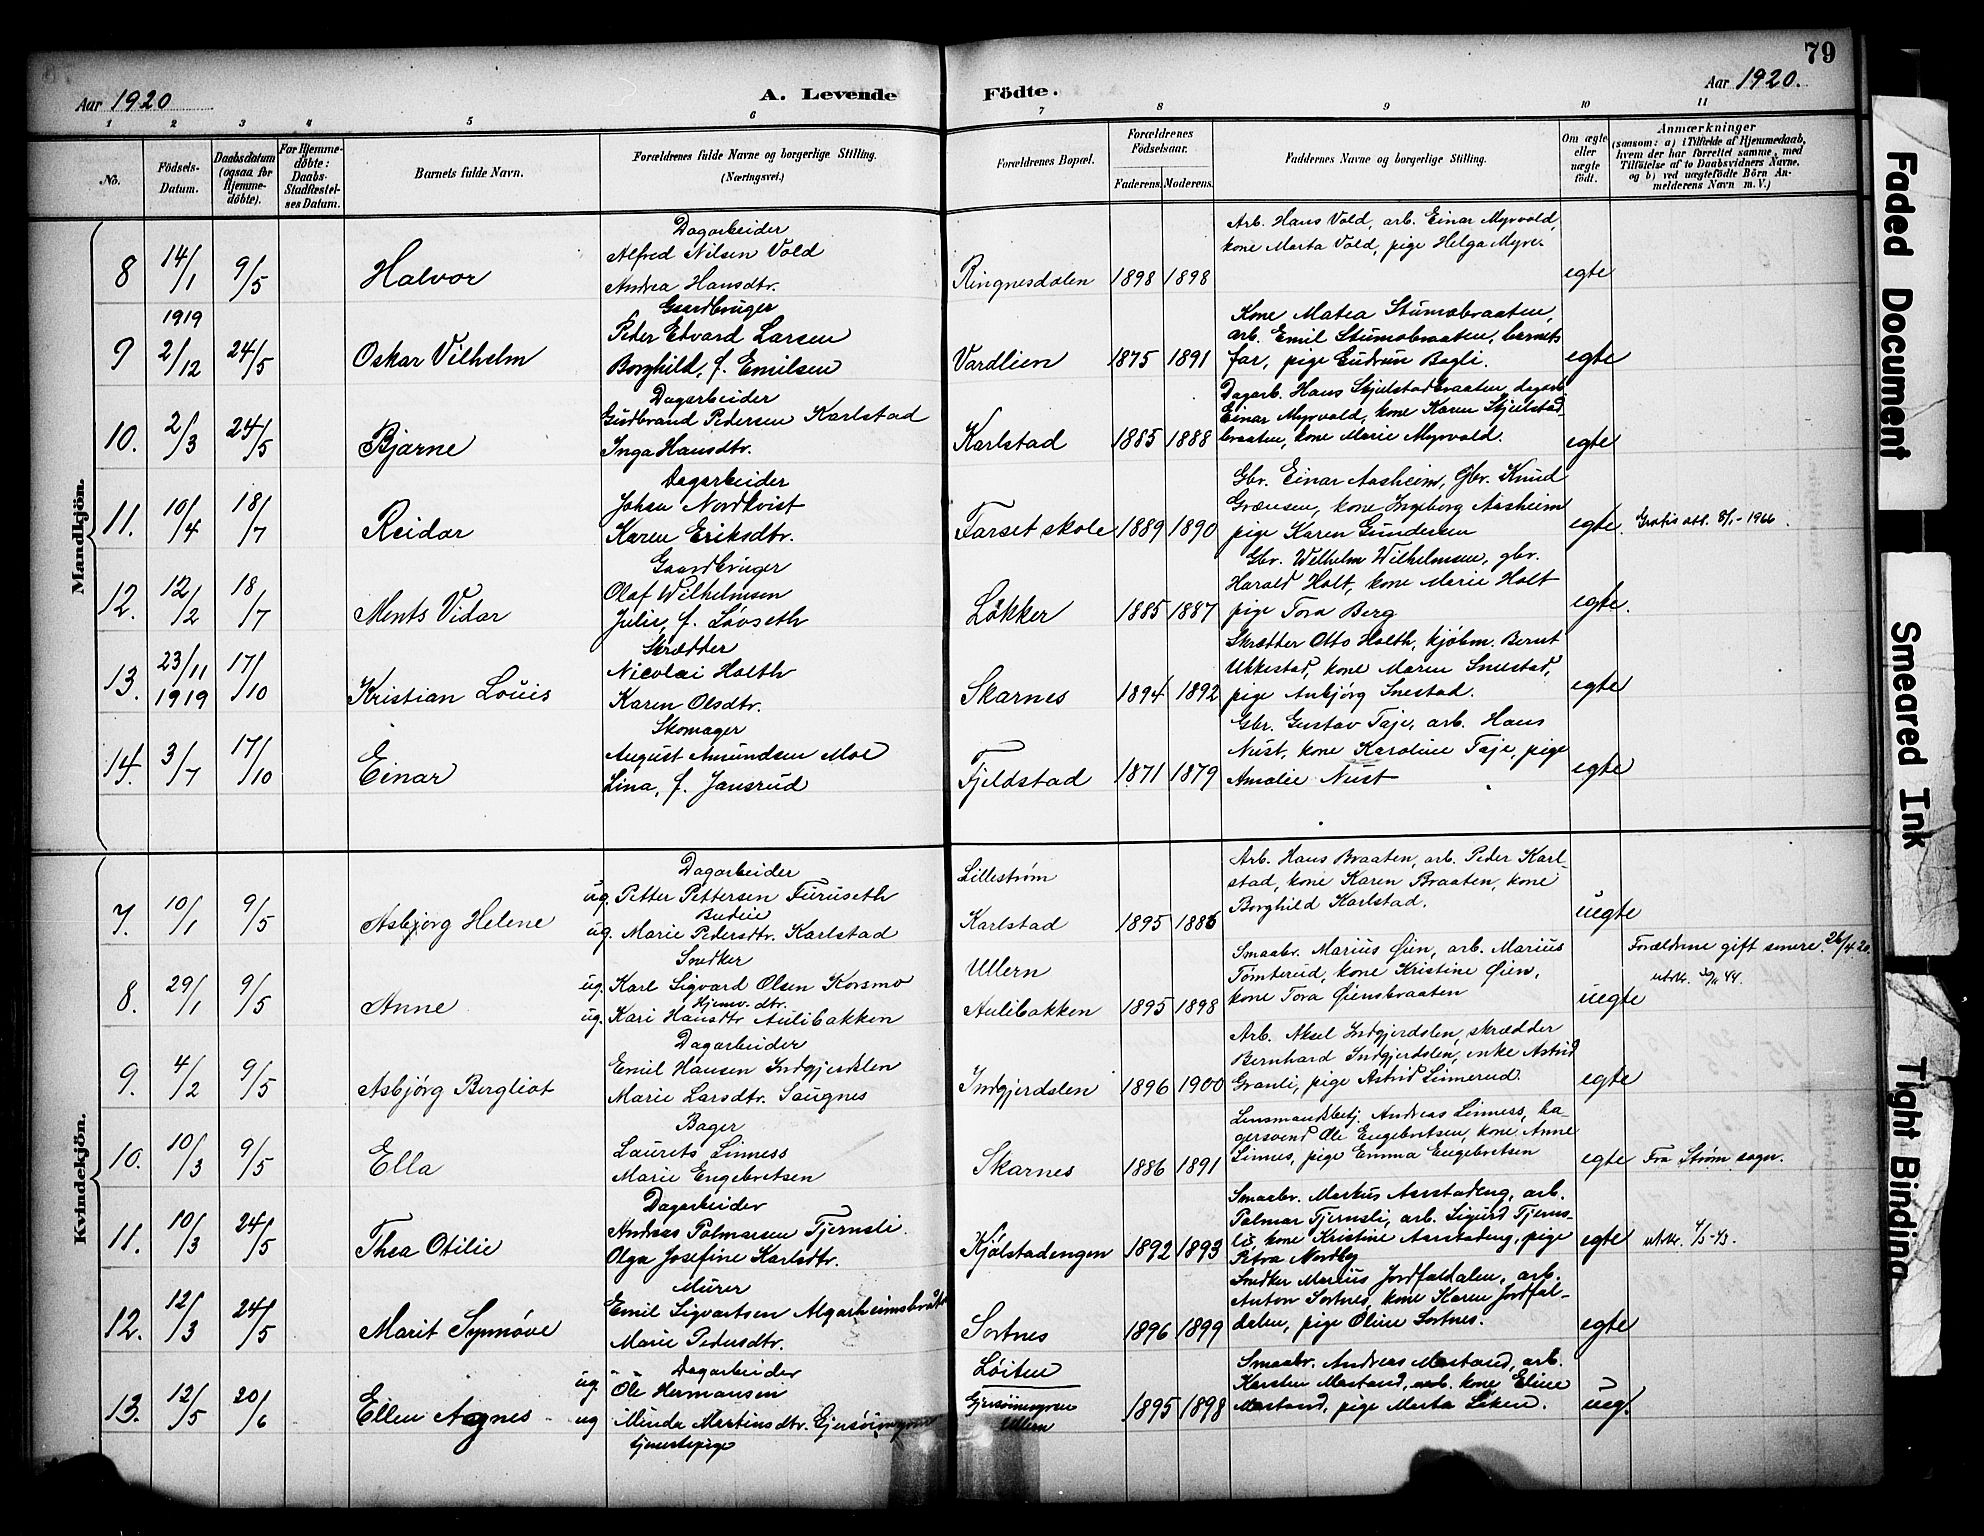 79
Aar 1920
A. Levende Födte.
Aar 1920.
1 2 3 4 5 6 7 8 9 10 11
No.
Födsels-Datum.
Daabsdatum (ogsaa for Hjemme-döbte).
For Hjemme-döbte: Daabs-Stadfæstel-ses Datum.
Barnets fulde Navn.
Forældrenes fulde Navne og borgerlige Stilling.
(Næringsvei.)
Forældrenes Bopæl.
Forældrenes Födselsaar.
Faderens. Moderens.
Faddernes Navne og borgerlige Stilling.
Om ægte eller uægte födt.
Anmærkninger
(saasom: a) i Tilfælde af Hjemmedaab,
hvem der har forrettet samme, med
Tilföielse af to Daabsvidners Navne,
og b) ved uægtefödte Börn An-
melderens Navn m. V.)
Mandkjön.
8 14/1 9/5 Halvor
Dagarbeider
Alfred Nilsen Vold
Andrea Hansdtr.
Ringnesdalen 1898 1898
Arb. Hans Vold, arb. Einar Myrvold,
kone Marta Vold, pige Helga Myre.
egte
9 1919 2/12 24/5 Oskar Vilhelm
Gaardbruger
Peder Edvard Larsen
Borghild, f. Emilsen
Vardlien 1875 1891
Kone Matea Stumobraaten,
arb. Emil Stumobraaten, barnets
far, pige Gudrun Bogli.
egte
10. 2/3 24/5 Bjarne
Dagarbeider
Gudbrand Pedersen Karlstad
Inga Hansdtr.
Karlstad 1885 1888
Dagarb. Hans Skjelstadbraaten, dagarb
Einar Myrvold, kone Karen Skjelstad
braaten, kone Marie Myrvold.
egte
11. 10/4 18/7 Reidar
Dagarbeider
Johan Nordkvist
Karen Eriksdtr.
Farset skole 1889 1890
Gbr. Einar Aasheim, Gbr. Knud
Grænsen, kone Ingeborg Aasheim
pige Karen Gundersen
egte. Gratis att. 8/1-1966.
12. 12/2 18/7 Ments Vidar
Gaardbruger
Olaf Wilhelmsen
Julie, f. Lövseth
Løkker 1885 1887
Gbr. Wilhelm Wilhelmsen, gbr.
Harald Holt, kone Marie Holt
pige Tora Berg
egte.
13. 23/11 1919 17/10 Kristian Louis
Skrædder
Nicolai Holth
Karen Olsdtr.
Skarnes 1894 1892
Skrædder Otto Holth, kjöbm. Bernt
Ukkestad, kone Maren Snestad,
pige Anbjörg Snestad.
egte
14. 3/7 17/10 Einar
Skomager
August Amundsen Moe
Lina, f. Jansrud
Fjeldstad 1871 1879
Gbr. Gustav Taje, arb. Hans
Nust, kone Karoline Taje, pige
Amalie Nust
egte
Kvindekjön.
7. 10/1 9/5 Asbjørg Helene
Dagarbeider
ug. Petter Pettersen Furuseth
Budeie
ug. Marie Pedersdtr. Karlstad
Lillestrøm
Karlstad 1895 1886
Arb. Hans Braaten, arb. Peder Karl-
stad, kone Karen Braaten, kone
Borghild Karlstad.
uegte
8. 29/1 9/5 Anne
Snedker
ug. Karl Sigvard Olsen Korsmo
Hjemv. dtr.
ug. Kari Hansdtr Aulibakken
Ullern
Aulibakken 1895 1898
Smaabr. Marius Øien, arb. Marius
Tømterud, kone Kristine Øien,
kone Tora Øiensbraaten
uegte
Forældrene gift senere 26/4 20.
9. 4/2 9/5 Asbjörg Bergliot
Dagarbeider
Emil Hansen Indgjerdslen
Marie Larsdtr. Saugnes
Indgjerdslen 1896 1900
Arb. Aksel Indgjerdslen, skrædder
Bernhard Indgjerdslen, enke Astrid
Granli, pige Astrid Linnerud.
egte
10. 10/3 9/5 Ella
Bager
Laurits Linness
Marie Engebretsen
Skarnes 1886 1891
Lensmandsbetj. Andreas Linness, ba-
gersvend Ole Engebretsen, kone Anne
Linnes, pige Emma Engebretsen
egte Fra Strøm sogn.
11. 10/3 24/5 Thea Otilie
Dagarbeider
Andreas Palmarsen Tjernsli.
Olga Josefine Karlsdtr.
Kjölstadengen 1892 1893
Smaabr. Markus Aarstadeng, arb.
Palmar Tjernsli, arb. Sigurd Tjerns-
li, kone Kristine Aarstadeng, pige
Petra Nordby
egte
12. 12/3 24/5 Marit Synnöve
Murer
Emil Sigvartsen Algarheimsbråte
Marie Pedersdtr.
Sortnes 1896 1899
Snedker Marius Jordfaldalen, arb.
Anton Sortnes, kone Karen Jordfal-
dalen, pige Oline Sortnes.
egte
13. 12/5 20/6 Ellen Agnes
Dagarbeider
ug. Ole Hermansen
ug Minda Martinsdtr. Gjersöimyren
tjenestepige
Løiten
Gjersöimyren
Ullern 1895 1898
Smaabr. Andreas Mastand, arb.
Karsten Mastand, kone Eline
Mastand, pige Marta Liken.
ueg.
Faded Document
Smeared Ink
Tight Binding